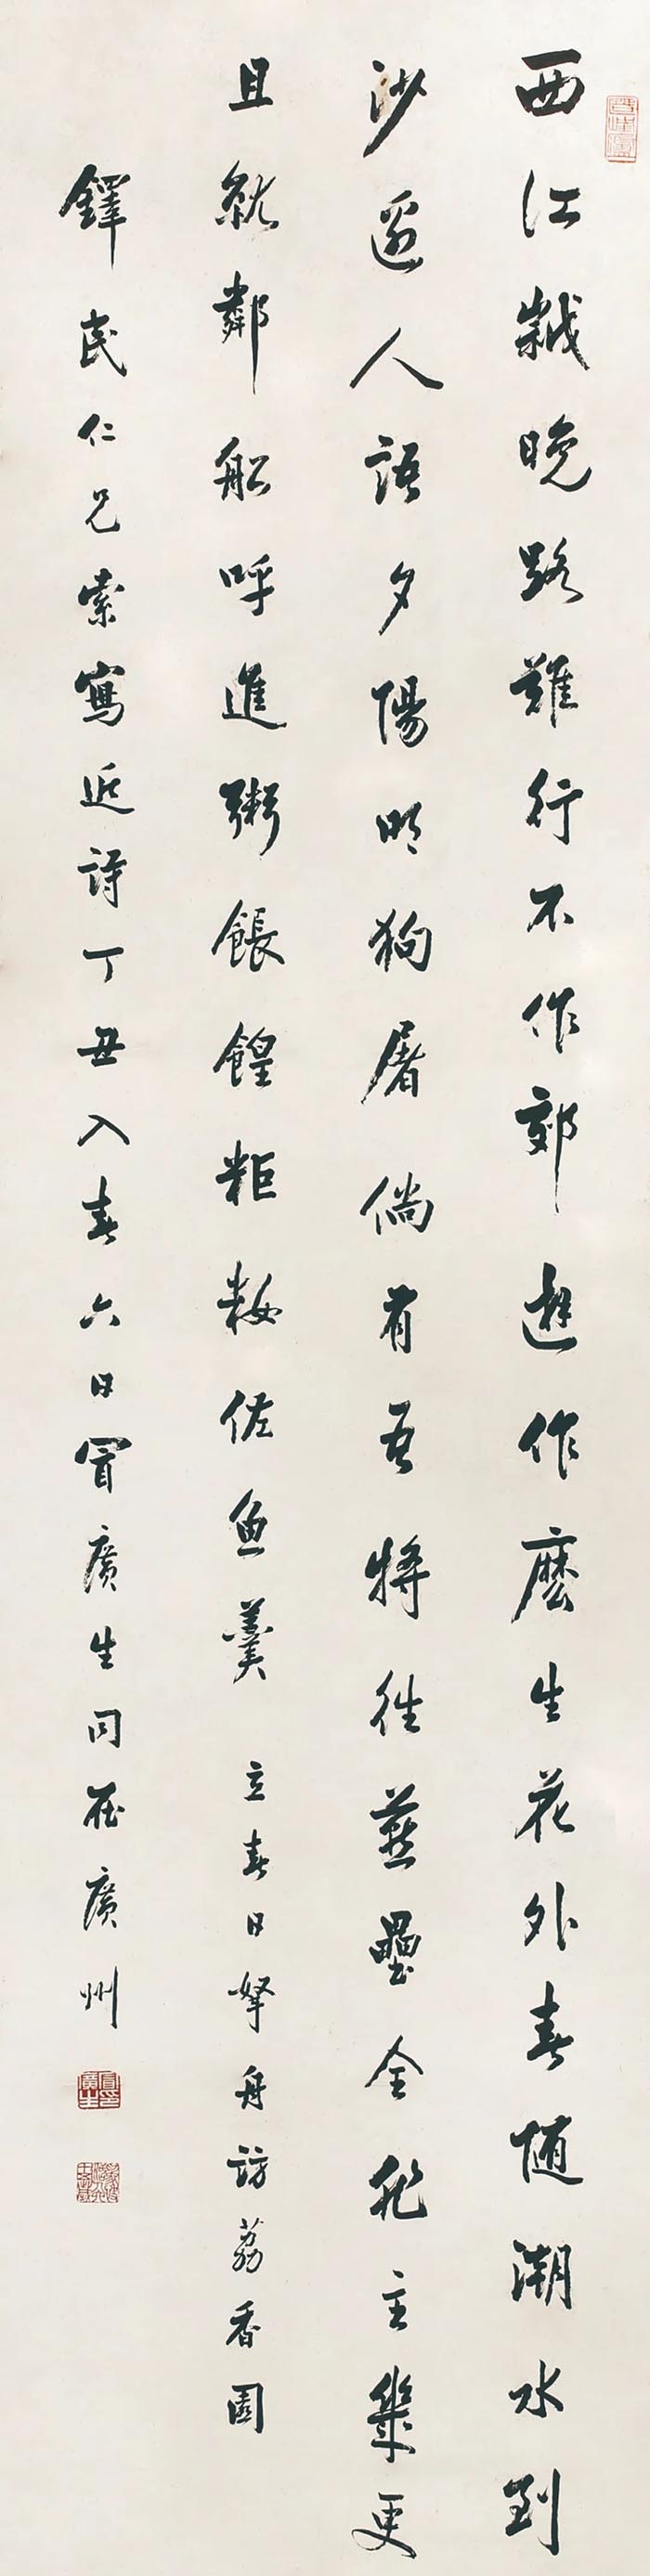 西江歲晚路難行不作郊遊作麼生花外春隨潮水到
沙邊人語夕陽明狗屠倘有吾將往燕壘全非主幾更
且就鄰船呼進粥餦餭粔籹佐魚羹 立春日拏舟訪荔香園
鐸民仁兄索寫近詩丁丑入春六日冒廣生同在廣州
冒廣生印